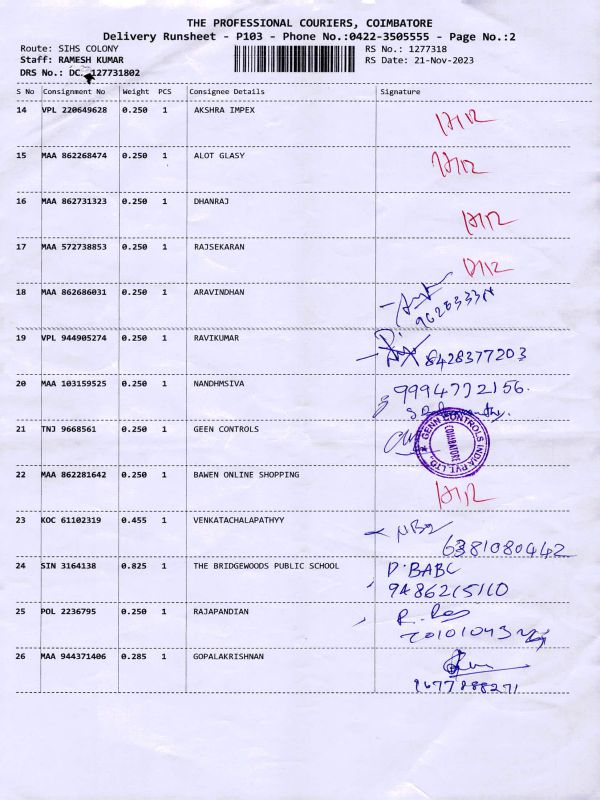 THE PROFESSIONAL COURIERS, COIMBATORE
Delivery Runsheet - P103 - Phone No.:0422-3505555 - Page No.:2
Route: SIHS COLONY RS No.: 1277318
Staff: RAMESH KUMAR RS Date: 21-Nov-2023
DRS No.: DC. 127731802
S No Consignment No Weight PCS Consignee Details Signature
14 VPL 220649628 0.250 1 AKSHRA IMPEX
15 MAA 862268474 0.250 1 ALOT GLASY
16 MAA 862731323 0.250 1 DHANRAJ
17 MAA 572738853 0.250 1 RAJSEKARAN
18 MAA 862686031 0.250 1 ARAVINDHAN
19 VPL 944905274 0.250 1 RAVIKUMAR 8428377203
20 MAA 103159525 0.250 1 NANDHMSIVA 9994772156.
21 TNJ 9668561 0.250 1 GEEN CONTROLS GENN CONTROLS INDIA PVT. LTD. COIMBATORE
22 MAA 862281642 0.250 1 BAWEN ONLINE SHOPPING
23 KOC 61102319 0.455 1 VENKATACHALAPATHYY 6381080442
24 SIN 3164138 0.825 1 THE BRIDGEWOODS PUBLIC SCHOOL D.BABC
9486215110
25 POL 2236795 0.250 1 RAJAPANDIAN
26 MAA 944371406 0.285 1 GOPALAKRISHNAN